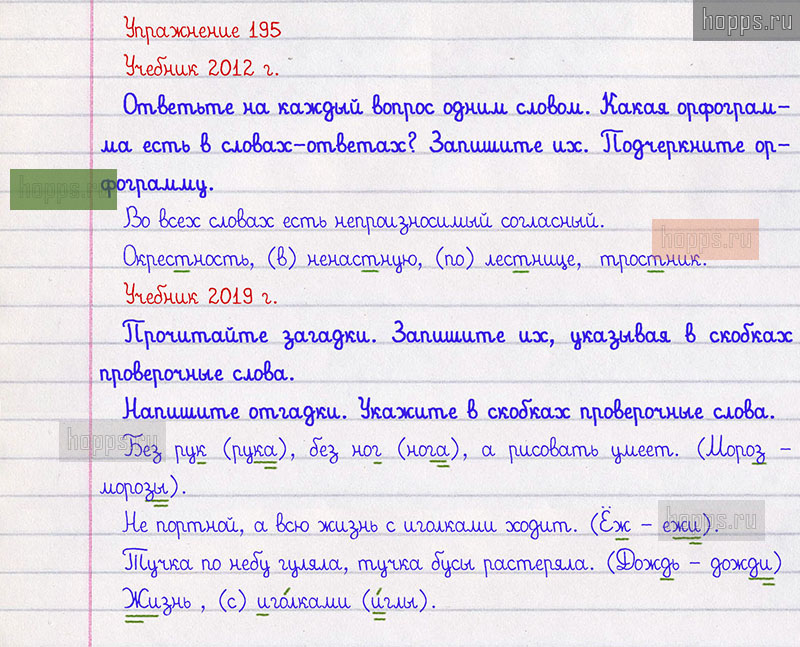 hopps.ru
Упражнение 195
Учебник 2012 г.
Ответьте на каждый вопрос одним словом. Какая орфограм-
ма есть в словах-ответах? Запишите их. Подчеркните ор-
hopps.ru
фограмму.
Во всех словах есть непроизносимый согласный.
hopps.ru
Окрестность, (в) ненастную, (по) лестнице, тростник.
Учебник 2019 г.
Прочитайте загадки. Запишите их, указывая в скобках
проверочные слова.
Напишите отгадки. Укажите в скобках проверочные слова.
hopps.ru
Без рук (рука), без ног (нога), а рисовать умеет. (Мороз –
морозы).
hopps.ru
Не портной, а всю жизнь с иголками ходит. (Ёж – ежи).
Тучка по небу гуляла, тучка бусы растеряла. (Дождь – дожди)
Жизнь , (с) иго́лками (и́глы).